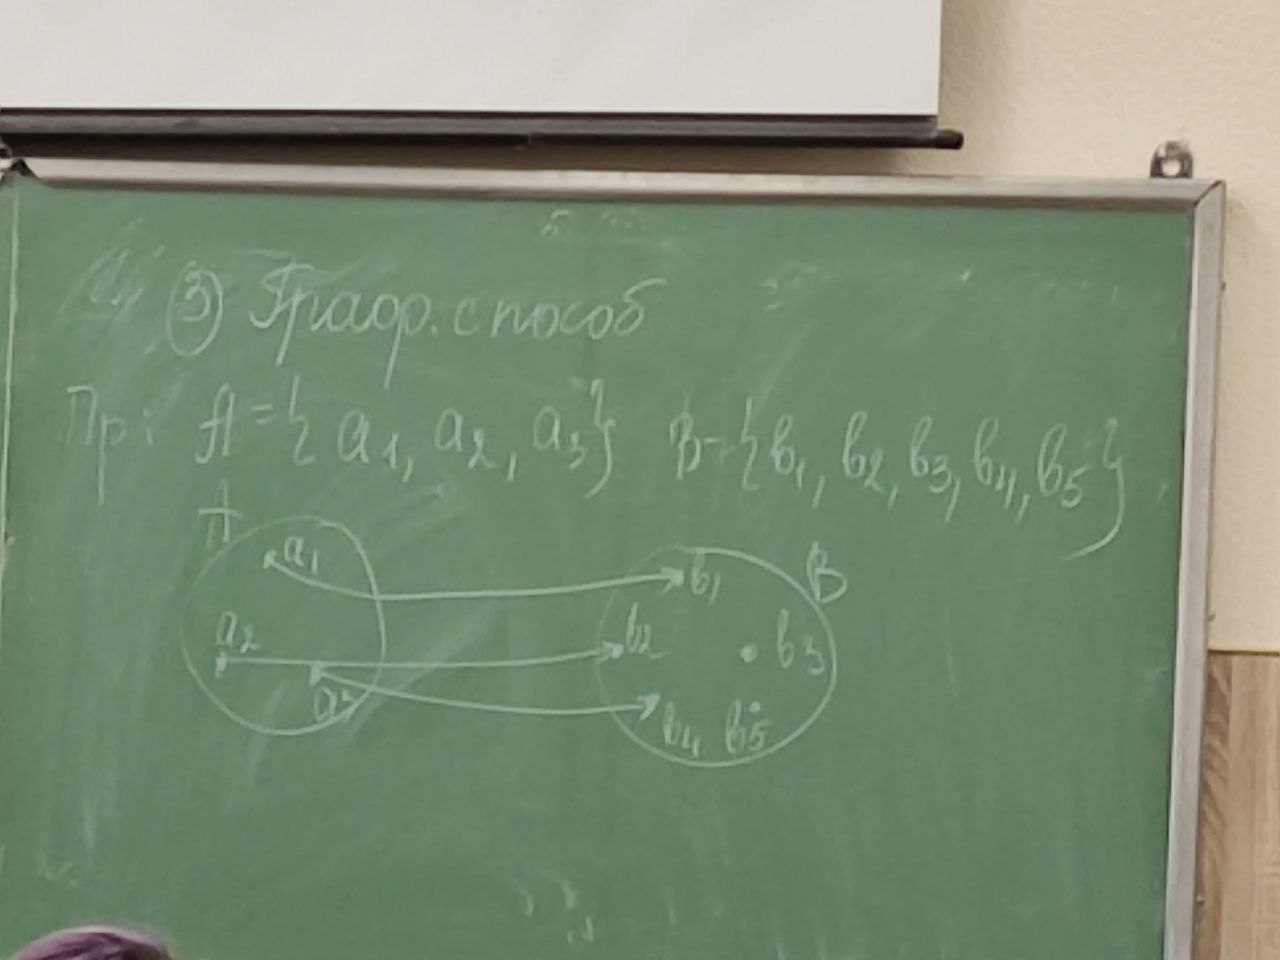 ③ Граф. способ
Пр: A = {a₁, a₂, a₃} B = {b₁, b₂, b₃, b₄, b₅}
A
a₁
b₁
B
a₂
b₂
b₃
a₃
b₄
b₅